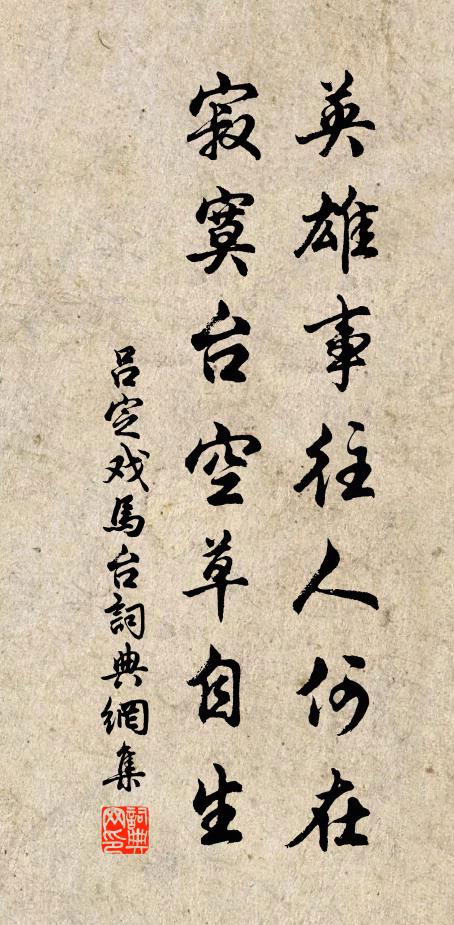 英雄事往人何在
寂寞台空草自生
吕定戏馬台詞典網集
詞典网印